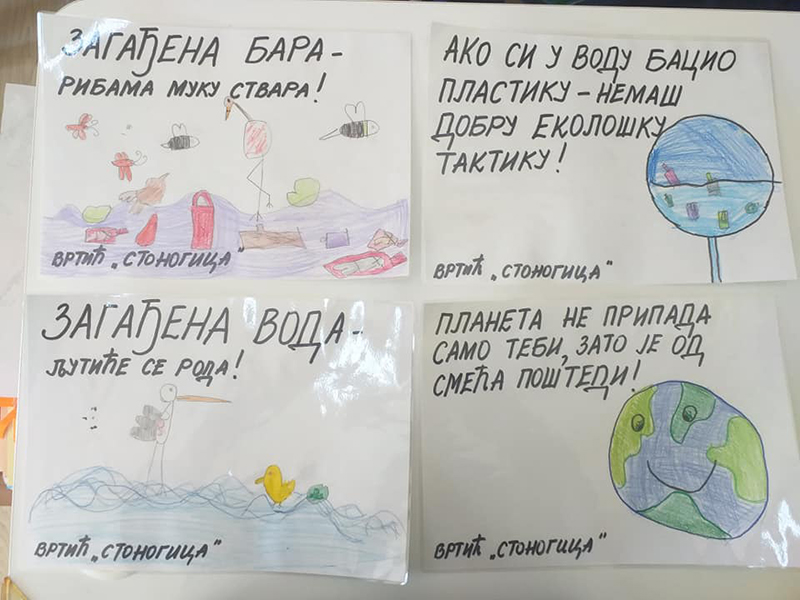 ЗАГАЂЕНА БАРА -
РИБАМА МУКУ СТВАРА!
ВРТИЋ „СТОНОГИЦА"
АКО СИ У ВОДУ БАЦИО
ПЛАСТИКУ - НЕМАШ
ДОБРУ ЕКОЛОШКУ
ТАКТИКУ!
ВРТИЋ „СТОНОГИЦА"
ЗАГАЂЕНА ВОДА -
ЉУТИЋЕ СЕ РОДА!
ВРТИЋ „СТОНОГИЦА"
ПЛАНЕТА НЕ ПРИПАДА
САМО ТЕБИ, ЗАТО ЈЕ ОД
СМЕЋА ПОШТЕДИ!
ВРТИЋ „СТОНОГИЦА"